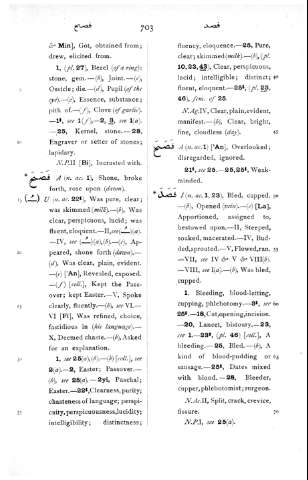 فصح 703 فصد
& Min], Got, obtained from;
drew, elicited from.
1, (pl. 27), Bezel (of a ring):
stone, gem.—(b), Joint.—(c),
Ossicle; die.—(d), Pupil (of the
eye).—(e), Essence, substance;
pith of.—(f), Clove (of garlic).
—25, Kernel, stone.—28,
Engraver or setter of stones;
lapidary.
N.P.II [Bi], Incrusted with.
فصح A (n. ac. 1), Shone, broke
forth, rose upon (dawn).
U (n. ac. 22t), Was pure, clear;
was skimmed (milk).—(b), Was
clear, perspicuous, lucid; was
fluent, eloquent.—II, see
—IV, see (a),(b).—(c), Ap-
peared, shone forth (dawn).—
(d), Was clear, plain, evident.
—(e) ['An], Revealed, exposed.
—(f) [coll.], Kept the Pass-
over; kept Easter.—V, Spoke
clearly, fluently.—(b), see VI.—
VI [Fi], Was refined, choice,
fastidious in (his language).—
X, Deemed chaste.—(b), Asked
for an explanation.
1, see 25(a),(b).—(b) [coll.], see
2(a).—2, Easter; Passover.—
(b), see 25(a).—2yi, Paschal;
Easter.—22t, Clearness, purity;
chasteness of language; perspi-
cuity, perspicuousness, lucidity;
intelligibility; distinctness;
fluency, eloquence.—25, Pure,
clear; skimmed (milk).—(b), (pl.
10, 23, 43), Clear, perspicuous,
lucid; intelligible; distinct;
fluent, eloquent.—25t, (pl. 23,
46), fem. of 25.
N.Ag.IV, Clear, plain, evident,
manifest.—(b), Clear, bright,
fine, cloudless (day).
فضخ A (n. ac. 1) ['An], Overlooked;
disregarded, ignored.
21t, see 25.—25, 25t, Weak-
minded.
فصد I (n. ac. 1, 23), Bled, cupped.
—(b), Opened (vein).—(c) [La],
Apportioned, assigned to,
bestowed upon.—II, Steeped,
soaked, macerated.—IV, Bud-
ded, sprouted.—V, Flowed, ran.
—VII, see IV & V & VIII(b).
—VIII, see I(a).—(b), Was bled,
cupped.
1, Bleeding, blood-letting,
cupping, phlebotomy.—3t, see
25t.—18, Cut, opening, incision.
—20, Lancet, bistoury.—23,
see 1.—23t, (pl. 46) [coll.], A
bleeding.—25, Bled.—(b), A
kind of blood-pudding or
sausage.—25t, Dates mixed
with blood.—28, Bleeder,
cupper, phlebotomist; surgeon.
N.Ac.II, Split, crack, crevice,
fissure.
N.P.I, see 25(a).